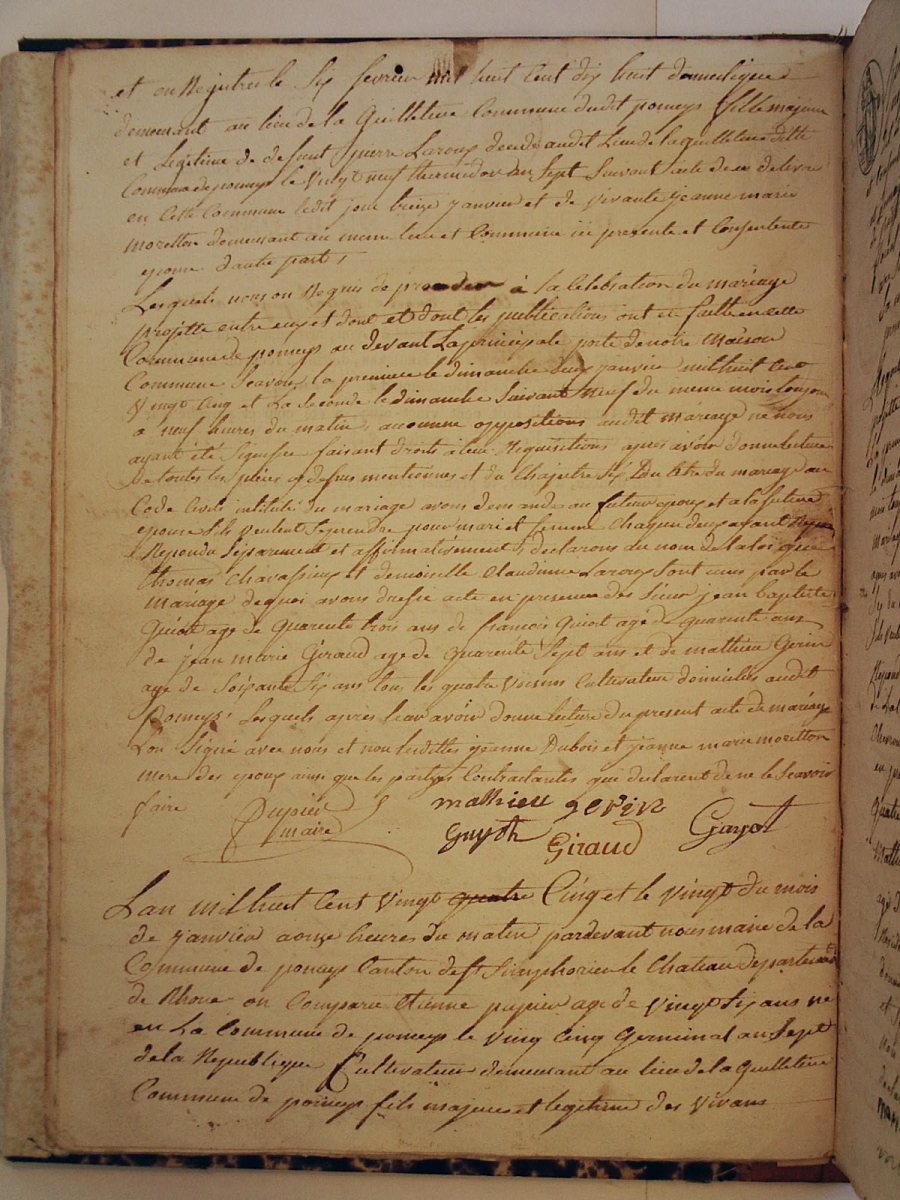 et en Registres le Six fevrier mil huit Cent dix huit domestique
demeurant au lieu de la Guilletiere Commune dudit pomeys fille majeure
et Legitime de defunt pierre Laroux decedé audit Lieu de la guilletiere ditte
Commune de pomeys le Vingt neuf thermidor an Sept Suivant acte de ce delivre
en Cette Commune ledit jour treize janvier et de vivante jeanne marie
moretton demeurant au meme lieu et Commune ici presente et Consentente
epouse d'autre part,
Lesquels nous on Requis de proceder a la Celebration du mariage
projette entre eux et dont et dont les publications ont ete faitte en cette
Commune de pomeys au devant La principale porte de notre Maison
Commune Scavoir la premiere le dimanche deux janvier mil huit Cent
Vingt Cinq et La Seconde le dimanche Suivant neuf du meme mois toujour
a neuf heures du matin, aucunne oppositions audit mariage ne nous
ayant été Signifie faisant droits à leur Requisitions apres avoir donne lecture
de toutes les pièces cy desus mentionnes et du Chapitre Six Du titre du mariage au
Code Civil intitulé du mariage avons demande au futeur epoux et a la future
epouse S'ils veulent Seprendre pour mari et femme Chaqun deux ayant
Repondu Séparement et affirmativement, declarons au nom de la loi que
thomas Chavassieux et demoiselle Claudinne Laroux Sont unis par le
Mariage dequoi avons dresse acte en presence des Sieur jean baptiste
Guiot age de quarente trois ans de francois Guiot age de quarente ans
de jean marie Giraud age de quarente Sept ans et de mathieu Gerin
age de Soixante Six ans tous les quatre Voisins Cultivateur domicilies audit
Pomeys, Lesquels après leur avoir donne lecture du present acte de mariage
L'on Signé avec nous et non lesdittes jeanne Dubois et jeanne marie moretton
mere des epoux ainsi que les partyes Contractantes qui declarent de ne le Scavoir
faire
mathieu gerin
maire
Guyot Giraud Gayot
L'an mil huit Cent Vingt quatre Cinq et le vingt du mois
de janvier a onze heures du matin pardevant nous maire de la
Commune de pomeys Canton de St Simphorien le Chateau departement
de Rhone on Comparu Etienne pupier age de Vingt Six ans ne
en La Commune de pomeys le Ving Cinq Germinal an Sept
de la Republique Cultivateur demeurant au lieu de la Guilletiere
Commune de pomeys fils majeur et legitime des Vivans